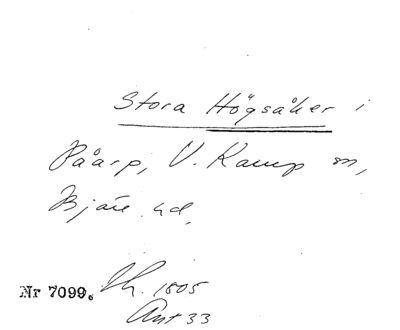 Stora Högsåker i
Påarp, V. Karup sn,
Bjäre hd,
Nr 7099. Sk. 1805
Ant 33